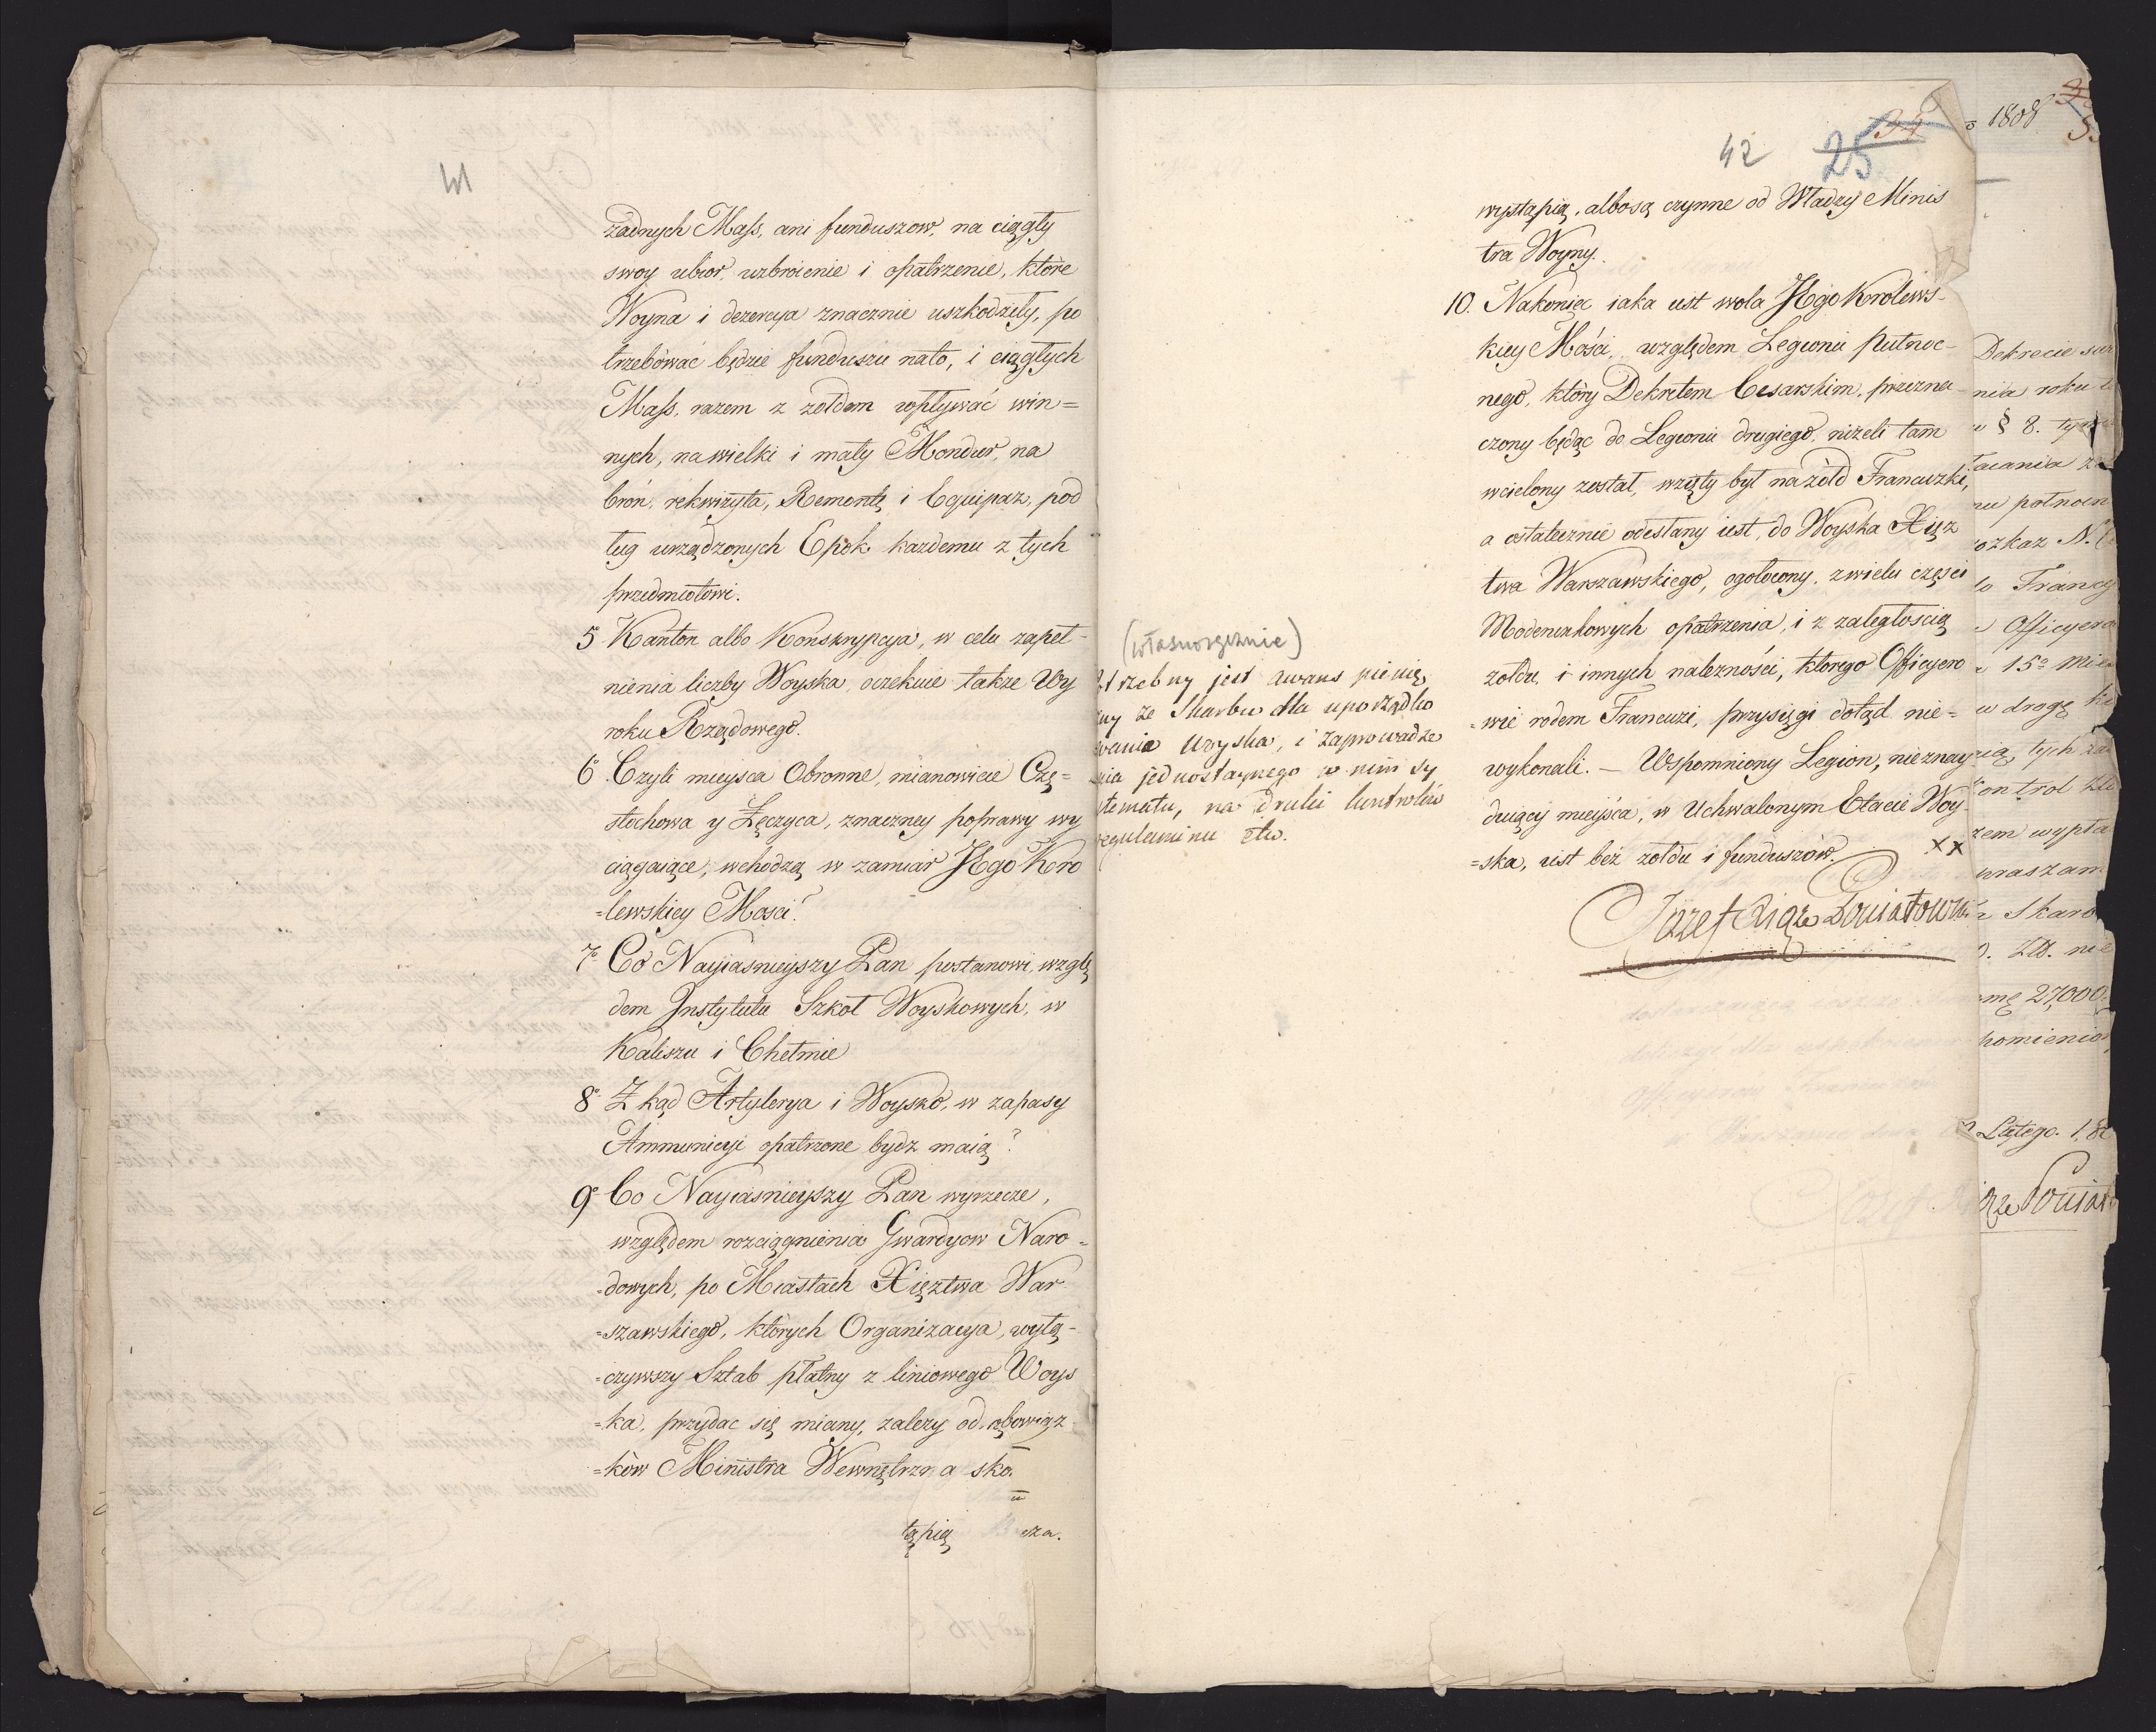 41
żadnych Mass, ani funduszow, na ciągły
swoy ubior, uzbroienie i opatrzenie, które
Woyna i dezercya znacznie uszkodziły, po
trzebować będzie funduszu nato, i ciągłych
Mass, razem z żołdem wpływać win=
nych, na wielki i mały Mondur, na
broń, rekwizyta, Remontę i Equipaz, pod
ług urządzonych Epok każdemu z tych
przedmiotowi.
5º Kanton albo Konskrypcya, w celu zapeł-
nienia liczby Woyska, oczekuie także Wy
roku Rządowego.
6º Czyli mieysca Obronne, mianowicie Czę=
stochowa y Łęczyca, znaczney poprawy wy
ciągaiące, wchodzą w zamiar JKgo Kro
=lewskiey Mosci?
7º Co Nayiasnieyszy Pan postanowi, wzglę
dem Instytutu Szkoł Woyskowych, w
Kaliszu i Chełmie
8º Z kąd Artylerya i Woysko, w zapasy
Ammunicyi opatrzone bydz maią?
9º Co Nayiasnieyszy Pan wyrzecze,
względem rozciągnienia Gwardyow Naro=
=dowych, po Miastach Xięztwa War
=szawskiego, których Organizacya, wyłą-
=czywszy Sztab płatny z liniowego Woys
=ka, przydac się miany, zalezy od obowiąz
=ków Ministra Wewnętrzn a sko.
tąpią sza.
(własnoręcznie)
trzebny jest awans pienię
ny ze Skarbu dla uporządko
wania Woyska, i zaprowadze
nia jednostaynego w nim sy
stematu, na druki kontrolów
regulaminu etc.
42 25
wystąpią, albo są czynne od Władzy Minis
tra Woyny.
10. Nakoniec iaka iest wola JKgo Krolews-
kiey Mości, względem Legionu Pułnoc-
nego, który Dekretem Cesarskim, przezna-
czony będąc do Legionu drugiego, niżeli tam
wcielony został, wzięty był na żołd Francuzki,
a ostatecznie odesłany iest, do Woyska Xięz
twa Warszawskiego, ogołocony, z wielu częsci
Moderunkowych opatrzenia, i z zaległoscią
żołdu, i innych należności, ktorego Officyero
=wie rodem Francuzi, przysięgi dotąd nie=
wykonali. — Wspomniony Legion, nieznay
duiący mieysca, w Uchwalonym Etacie Woy-
=ska, iest bez żołdu i funduszów. xx
Józef Xiąże Poniatowski
1808
Dekrecie
nia roku
§ 8.
łacania
nu połnocn
ozkaz N.
do Francy
Officyero
15º
w drogę
tych
ontrol
zem wypła
upraszam
Skarb
nie
mę 27,000
pomienio
Lutego. 18
ąże Poniat